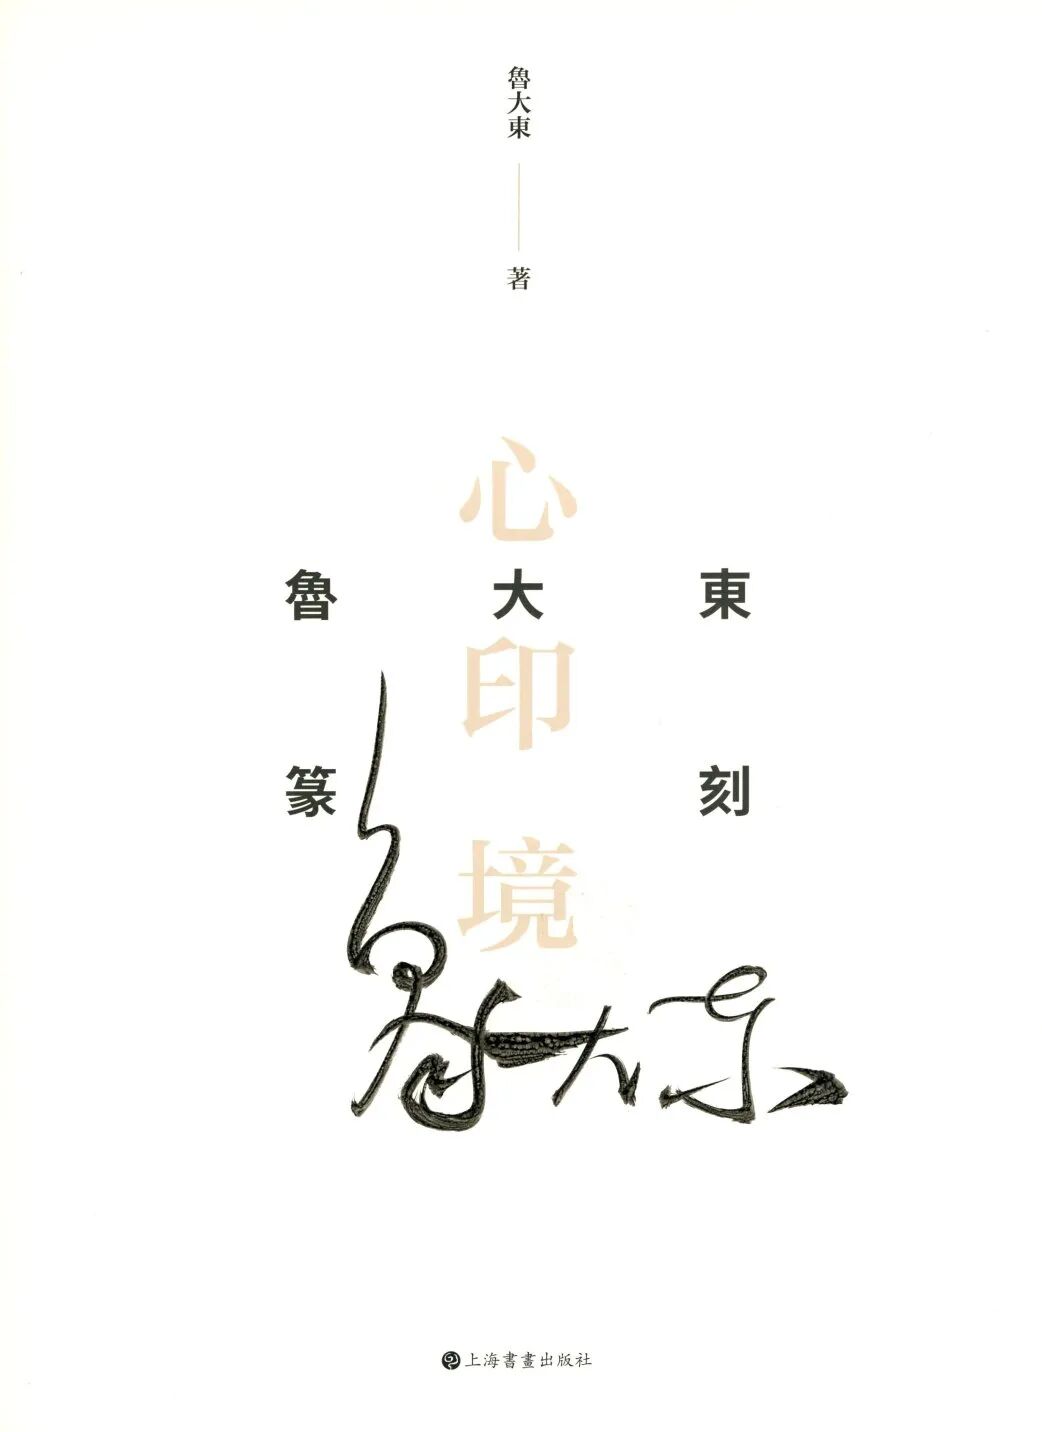 魯大東
著
心印境
魯大東
篆刻
魯大东
上海書畫出版社